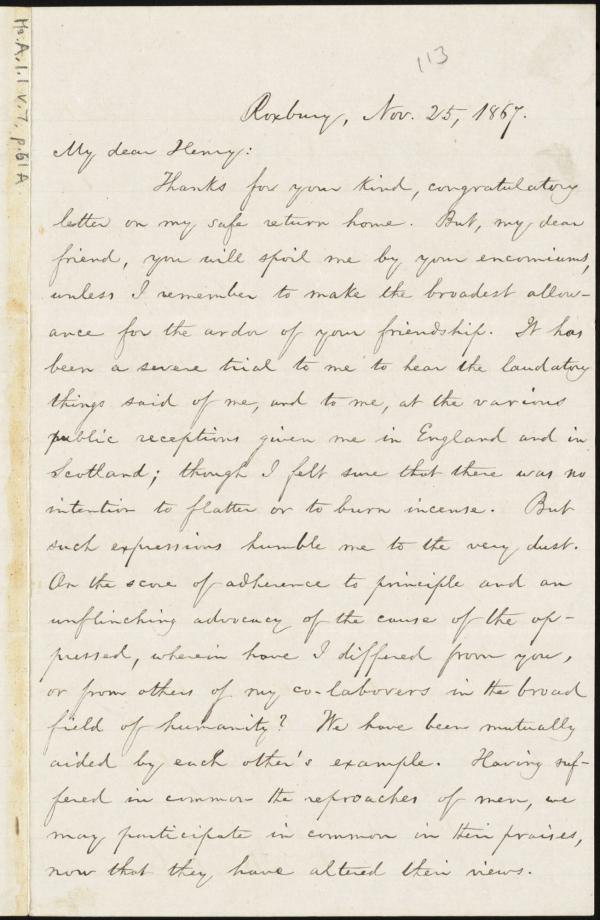 113
Ms.A.1.1 v.7, p.61A
Roxbury, Nov. 25, 1867.
My dear Henry:
Thanks for your kind, congratulatory
letter on my safe return home. But, my dear
friend, you will spoil me by your encomiums,
unless I remember to make the broadest allow-
ance for the ardor of your friendship. It has
been a severe trial to me to hear the laudatory
things said of me, and to me, at the various
public receptions given me in England and in
Scotland; though I felt sure that there was no
intention to flatter or to burn incense. But
such expressions humble me to the very dust.
On the score of adherence to principle and an
unflinching advocacy of the cause of the op-
pressed, wherein have I differed from you,
or from others of my co-laborers in the broad
field of humanity? We have been mutually
aided by each other's example. Having suf-
fered in common the reproaches of men, we
may participate in common in their praises,
now that they have altered their views.